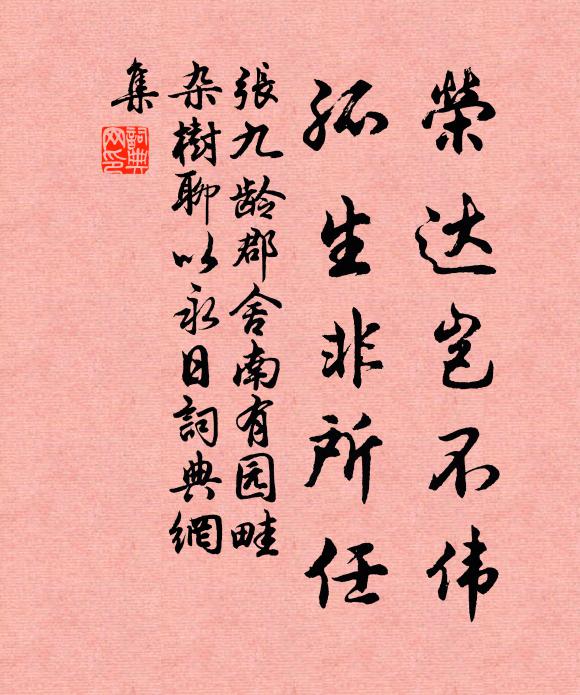 荣达岂不伟
孤生非所任
張九龄郡舍南有园畦
杂樹聊以永日詞典網
集
詞典网印